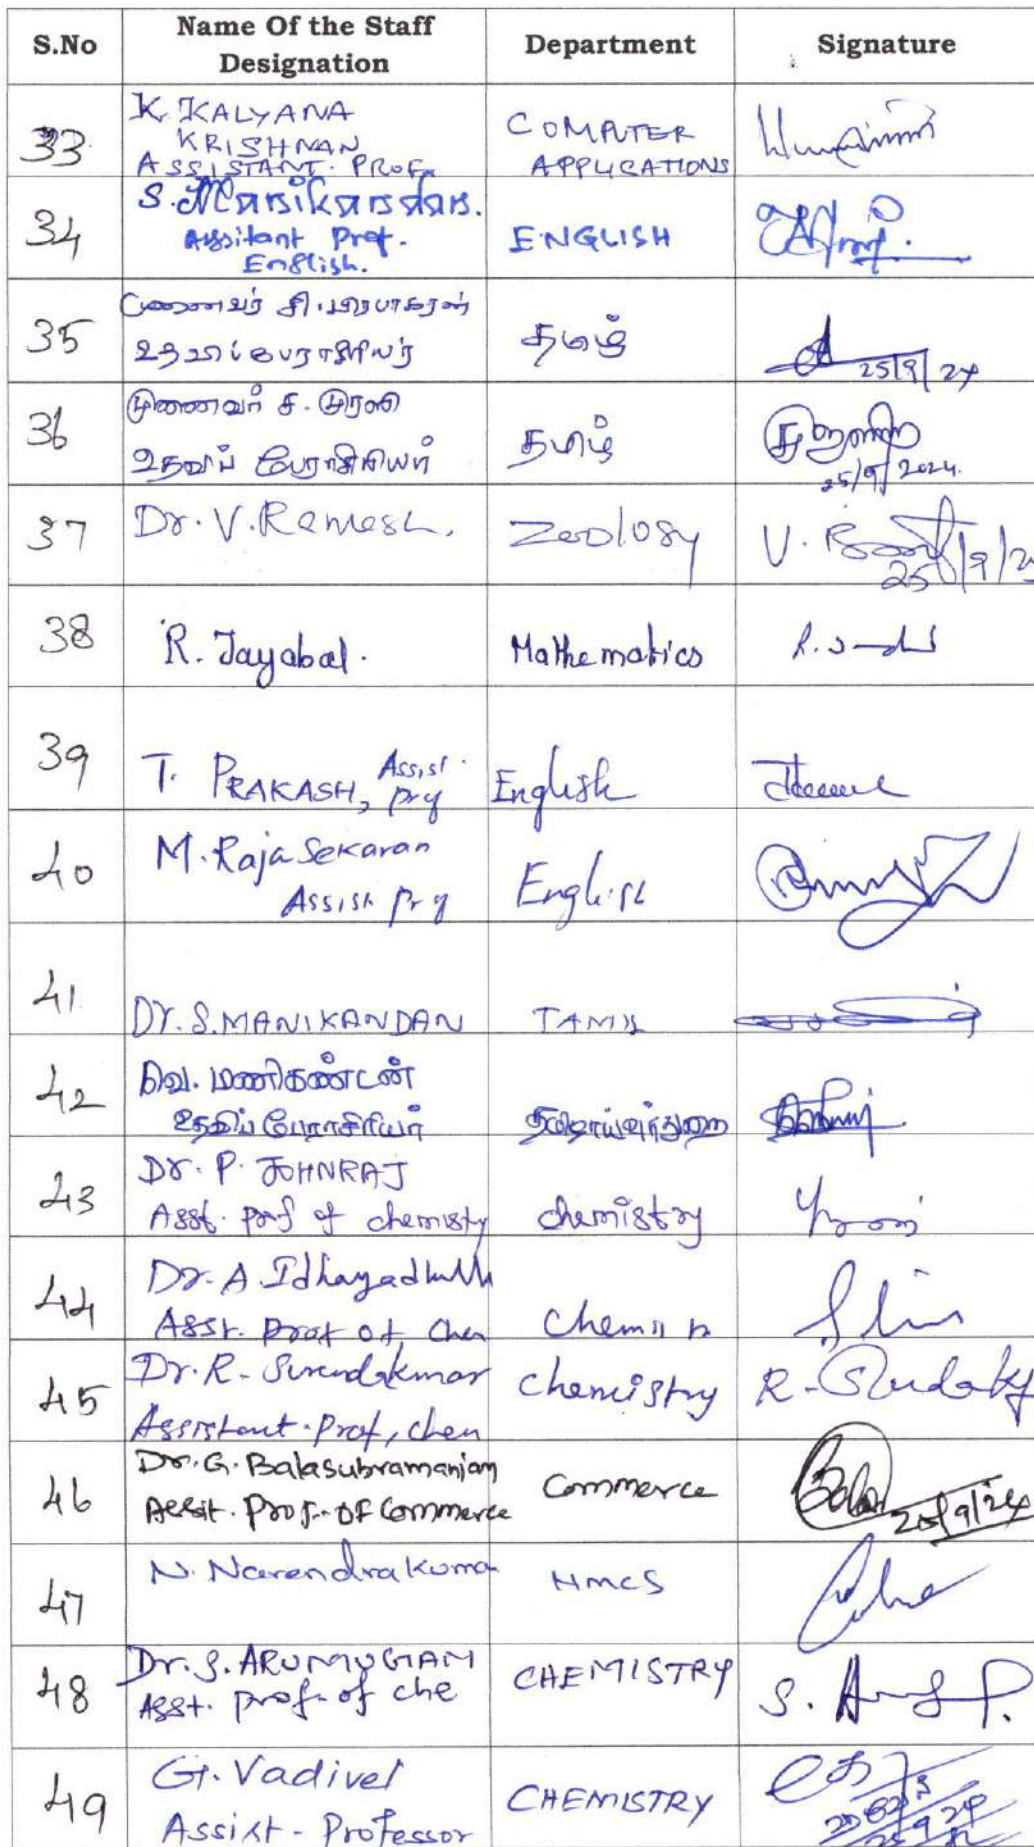 S.No Name Of the Staff Designation Department Signature
33 K. KALYANA KRISHNAN ASSISTANT. PROF. COMPUTER APPLICATIONS
34 S. Manikandan. Assitant Prof. English. ENGLISH
35 முனைவர் சி. பிரபாகரன் உதவிப்பேராசிரியர் தமிழ் 25/9/24
36 முனைவர் ச. முரளி உதவிப் பேராசிரியர் தமிழ் 25/9/2024.
37 Dr. V. Ramesh. Zoology V. 25/9/
38 R. Jayabal. Mathematics R.
39 T. PRAKASH, Assist. Prof English
40 M. Raja Sekaran Assist Prof English
41 Dr. S. MANIKANDAN TAMIL
42 வெ. மணிகண்டன் உதவிப் பேராசிரியர் தமிழாய்வுத்துறை
43 Dr. P. JOHNRAJ Asst. prof of chemistry chemistry
44 Dr. A. Idhayadhulla Asst. prof of Che
45 Dr. R. Surendrakumar Assistant. Prof, chem Chemistry R.
46 Dr. G. Balasubramaniam Assit. Prof. OF Commerce Commerce Bala 25/9/24
47 N. Narendrakuma HMCS
48 Dr. S. ARUMUGAM Asst. prof. of che CHEMISTRY S.
49 G. Vadivel Assist - Professor CHEMISTRY